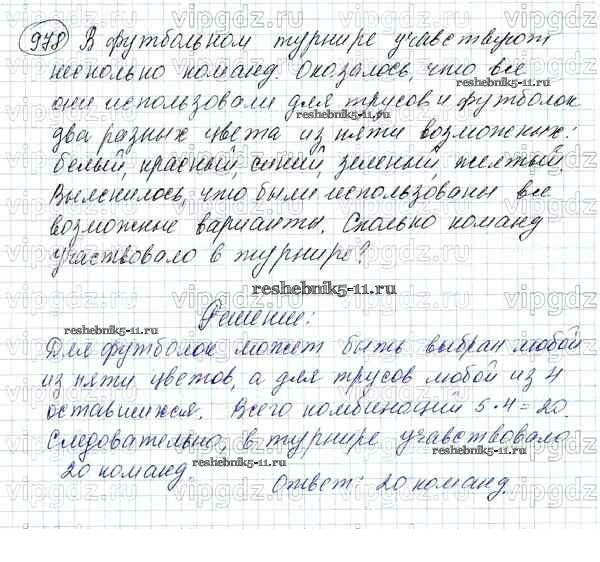 978 В футбольном турнире учавствуют
несколько команд. Оказалось, что все
они использовали для трусов и футболок
два разных цвета из пяти возможных:
белый, красный, синий, зелёный, желтый.
Выяснилось, что были использованы все
возможные варианты. Сколько команд
участвовало в турнире?
reshebnik5-11.ru
Решение:
Для футболок может быть выбран любой
из пяти цветов, а для трусов любой из 4
оставшихся. Всего комбинаций 5·4=20.
Следовательно, в турнире учавствовало
20 команд.
reshebnik5-11.ru
Ответ: 20 команд.